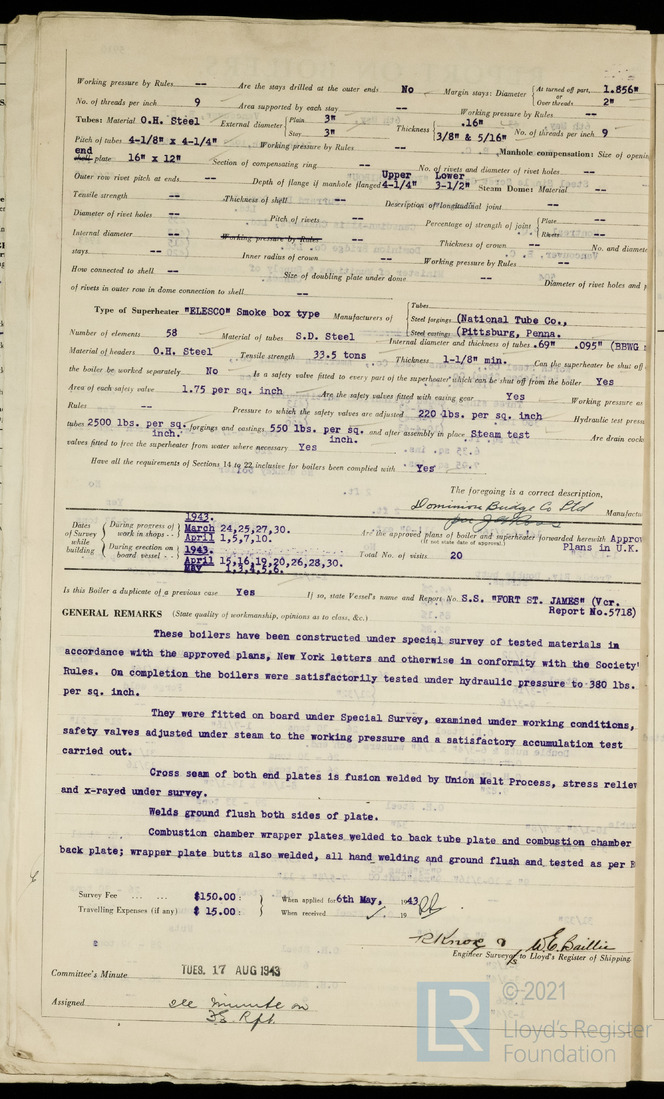 Working pressure by Rules -- Are the stays drilled at the outer ends No Margin stays: Diameter { At turned off part, 1.856"
or
Over threads 2"
No. of threads per inch 9 Area supported by each stay -- Working pressure by Rules --
Tubes: Material O.H. Steel External diameter { Plain 3" Stay 3" Thickness { .16" 3/8" & 5/16" No. of threads per inch 9
Pitch of tubes 4-1/8" x 4-1/4" Working pressure by Rules -- Manhole compensation: Size of openin
end
shell plate 16" x 12" Section of compensating ring -- No. of rivets and diameter of rivet holes --
Outer row rivet pitch at ends. -- Depth of flange if manhole flanged Upper 4-1/4" Lower 3-1/2" Steam Dome: Material --
Tensile strength -- Thickness of shell -- Description of longitudinal joint --
Diameter of rivet holes -- Pitch of rivets -- Percentage of strength of joint { Plate -- Rivets --
Internal diameter -- Working pressure by Rules -- Thickness of crown -- No. and diamete
stays -- Inner radius of crown -- Working pressure by Rules --
How connected to shell -- Size of doubling plate under dome -- Diameter of rivet holes and p
of rivets in outer row in dome connection to shell --
Type of Superheater "ELESCO" Smoke box type Manufacturers of { Tubes
Steel forgings (National Tube Co.,
Steel castings (Pittsburg, Penna.
Number of elements 58 Material of tubes S.D. Steel Internal diameter and thickness of tubes .69" .095" (BBWG
Material of headers O.H. Steel Tensile strength 33.5 tons Thickness 1-1/8" min. Can the superheater be shut off
the boiler be worked separately No Is a safety valve fitted to every part of the superheater which can be shut off from the boiler Yes
Area of each safety valve 1.75 per sq. inch Are the safety valves fitted with easing gear Yes Working pressure as
Rules -- Pressure to which the safety valves are adjusted 220 lbs. per sq. inch Hydraulic test pressu
tubes 2500 lbs. per sq. inch. forgings and castings 550 lbs. per sq. inch. and after assembly in place Steam test Are drain cock
valves fitted to free the superheater from water where necessary Yes
Have all the requirements of Sections 14 to 22 inclusive for boilers been complied with Yes
The foregoing is a correct description,
Dominion Bridge Co Ltd Manufactu
Dates of Survey while building { During progress of work in shops - - } 1943. March 24,25,27,30. April 1,5,7,10.
Are the approved plans of boiler and superheater forwarded herewith Approv
(If not state date of approval.) Plans in U.K.
{ During erection on board vessel - - - } 1943. April 15,16,19,20,26,28,30. May 1,3,4,5,6. Total No. of visits 20
Is this Boiler a duplicate of a previous case Yes If so, state Vessel's name and Report No. S.S. "FORT ST. JAMES" (Vcr.
Report No.5718)
GENERAL REMARKS (State quality of workmanship, opinions as to class, &c.)
These boilers have been constructed under special survey of tested materials in
accordance with the approved plans, New York letters and otherwise in conformity with the Society'
Rules. On completion the boilers were satisfactorily tested under hydraulic pressure to 380 lbs.
per sq. inch.
They were fitted on board under Special Survey, examined under working conditions,
safety valves adjusted under steam to the working pressure and a satisfactory accumulation test
carried out.
Cross seam of both end plates is fusion welded by Union Melt Process, stress reliev
and x-rayed under survey.
Welds ground flush both sides of plate.
Combustion chamber wrapper plates welded to back tube plate and combustion chamber
back plate; wrapper plate butts also welded, all hand welding and ground flush and tested as per
Survey Fee ... ... $150.00 : } When applied for 6th May, 1943
Travelling Expenses (if any) $ 15.00 : } When received 19
R Knox & W.E. Baillie
Engineer Surveyor/s to Lloyd's Register of Shipping.
Committee's Minute TUES. 17 AUG 1943
Assigned see minute on
F.E. Rpt.
LR
© 2021
Lloyd's Register
Foundation